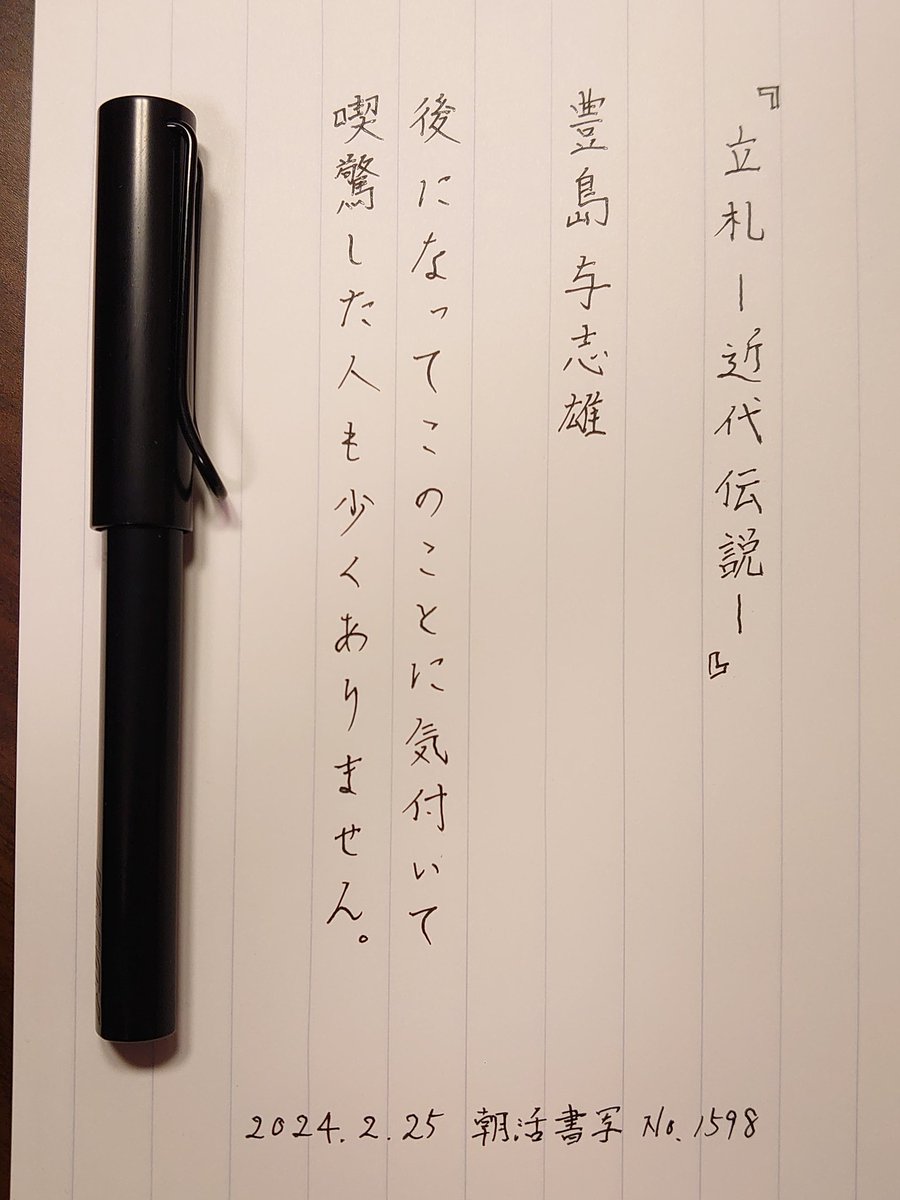 『立札―近代伝説―』
豊島与志雄
後になってこのことに気付いて
喫驚した人も少くありません。
2024.2.25 朝活書写 No.1598